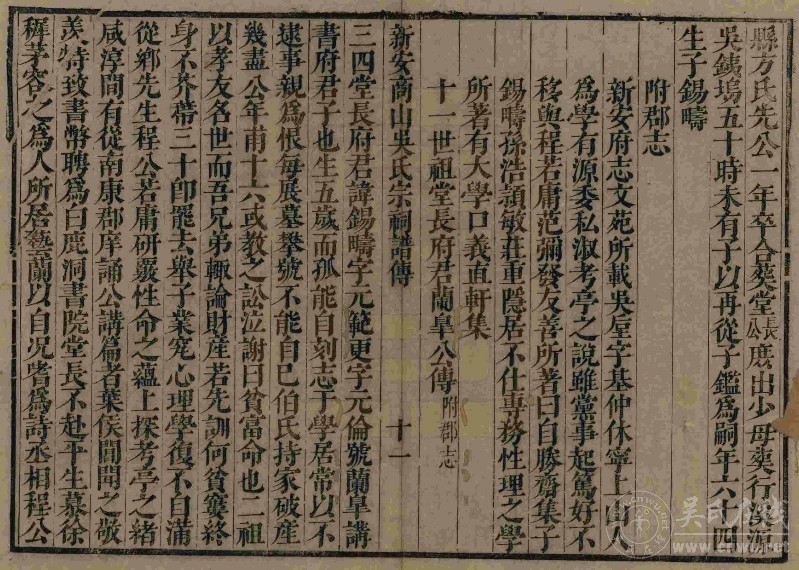 縣方氏先公一年卒合葬堂長公庶出少母葬行溪源
吳銕塢五十時未有子以再從子鑑爲嗣年六十四
生子錫疇
附郡志
新安府志文苑所載吳垕字基仲休寧上山人
爲學有源委私淑考亭之說雖黨事起篤好不
移與程若庸范彌發友善所著曰自勝齋集子
錫疇孫浩穎敏莊重隱居不仕專務性理之學
所著有大學口義直軒集
十一世祖堂長府君蘭臯公傳附郡志
新安商山吳氏宗祠譜傳 十一
三四堂長府君諱錫疇字元範更字元倫號蘭臯講
書府君子也生五歲而孤能自刻志于學居常以不
逮事親爲恨每展墓攀號不能自已伯氏持家破產
幾盡公年甫十六或教之訟泣謝曰貧富命也二祖
以孝友名世而吾兄弟輙論財產若先訓何貧窶終
身不芥蔕三十卽罷去舉子業究心理學復不自滿
從鄉先生程公若庸研覈性命之蘊上探考亭之緒
咸淳間有從南康郡庠誦公講篇者葉侯閶聞之敬
羨特致書幣聘爲白鹿洞書院堂長不赴平生慕徐
穉茅容之爲人所居藝蘭以自况耆爲詩丞相程公
吳氏在線
www.cnwu.net